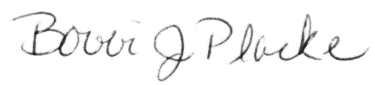 Bobbi J Placke